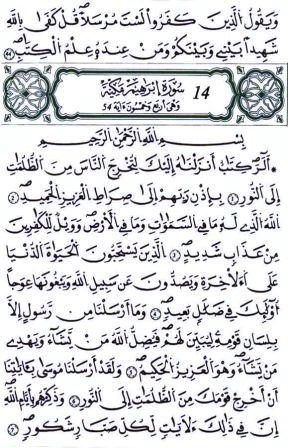 وَيَقُولُ الَّذِينَ كَفَرُوا لَسْتَ مُرْسَلًا قُلْ كَفَىٰ بِاللَّهِ
شَهِيدًا بَيْنِي وَبَيْنَكُمْ وَمَنْ عِندَهُ عِلْمُ الْكِتَٰبِ
سُورَةُ إِبْرَاهِيمَ مَكِّيَّة 14
وَهِيَ أَرْبَع وَخَمْسُونَ ءَايَة 54
بِسْمِ اللَّهِ الرَّحْمَٰنِ الرَّحِيمِ
أَلَٓرَ كِتَٰبٌ أَنزَلْنَٰهُ إِلَيْكَ لِتُخْرِجَ النَّاسَ مِنَ الظُّلُمَٰتِ
إِلَى النُّورِ بِإِذْنِ رَبِّهِمْ إِلَىٰ صِرَٰطِ الْعَزِيزِ الْحَمِيدِ
اللَّهُ الَّذِي لَهُ مَا فِي السَّمَٰوَٰتِ وَمَا فِي الْأَرْضِ وَوَيْلٌ لِّلْكَٰفِرِينَ
مِنْ عَذَابٍ شَدِيدٍ الَّذِينَ يَسْتَحِبُّونَ الْحَيَوٰةَ الدُّنْيَا
عَلَى الْأَخِرَةِ وَيَصُدُّونَ عَن سَبِيلِ اللَّهِ وَيَبْغُونَهَا عِوَجًا
أُولَٰئِكَ فِي ضَلَٰلٍ بَعِيدٍ وَمَا أَرْسَلْنَا مِن رَّسُولٍ إِلَّا
بِلِسَانِ قَوْمِهِ لِيُبَيِّنَ لَهُمْ فَيُضِلُّ اللَّهُ مَنْ يَّشَاءُ وَيَهْدِي
مَنْ يَّشَاءُ وَهُوَ الْعَزِيزُ الْحَكِيمُ وَلَقَدْ أَرْسَلْنَا مُوسَىٰ بِـَٔايَٰتِنَا
أَنْ أَخْرِجْ قَوْمَكَ مِنَ الظُّلُمَٰتِ إِلَى النُّورِ وَذَكِّرْهُم بِأَيَّٰمِ اللَّهِ
إِنَّ فِي ذَٰلِكَ لَأَيَٰتٍ لِّكُلِّ صَبَّارٍ شَكُورٍ